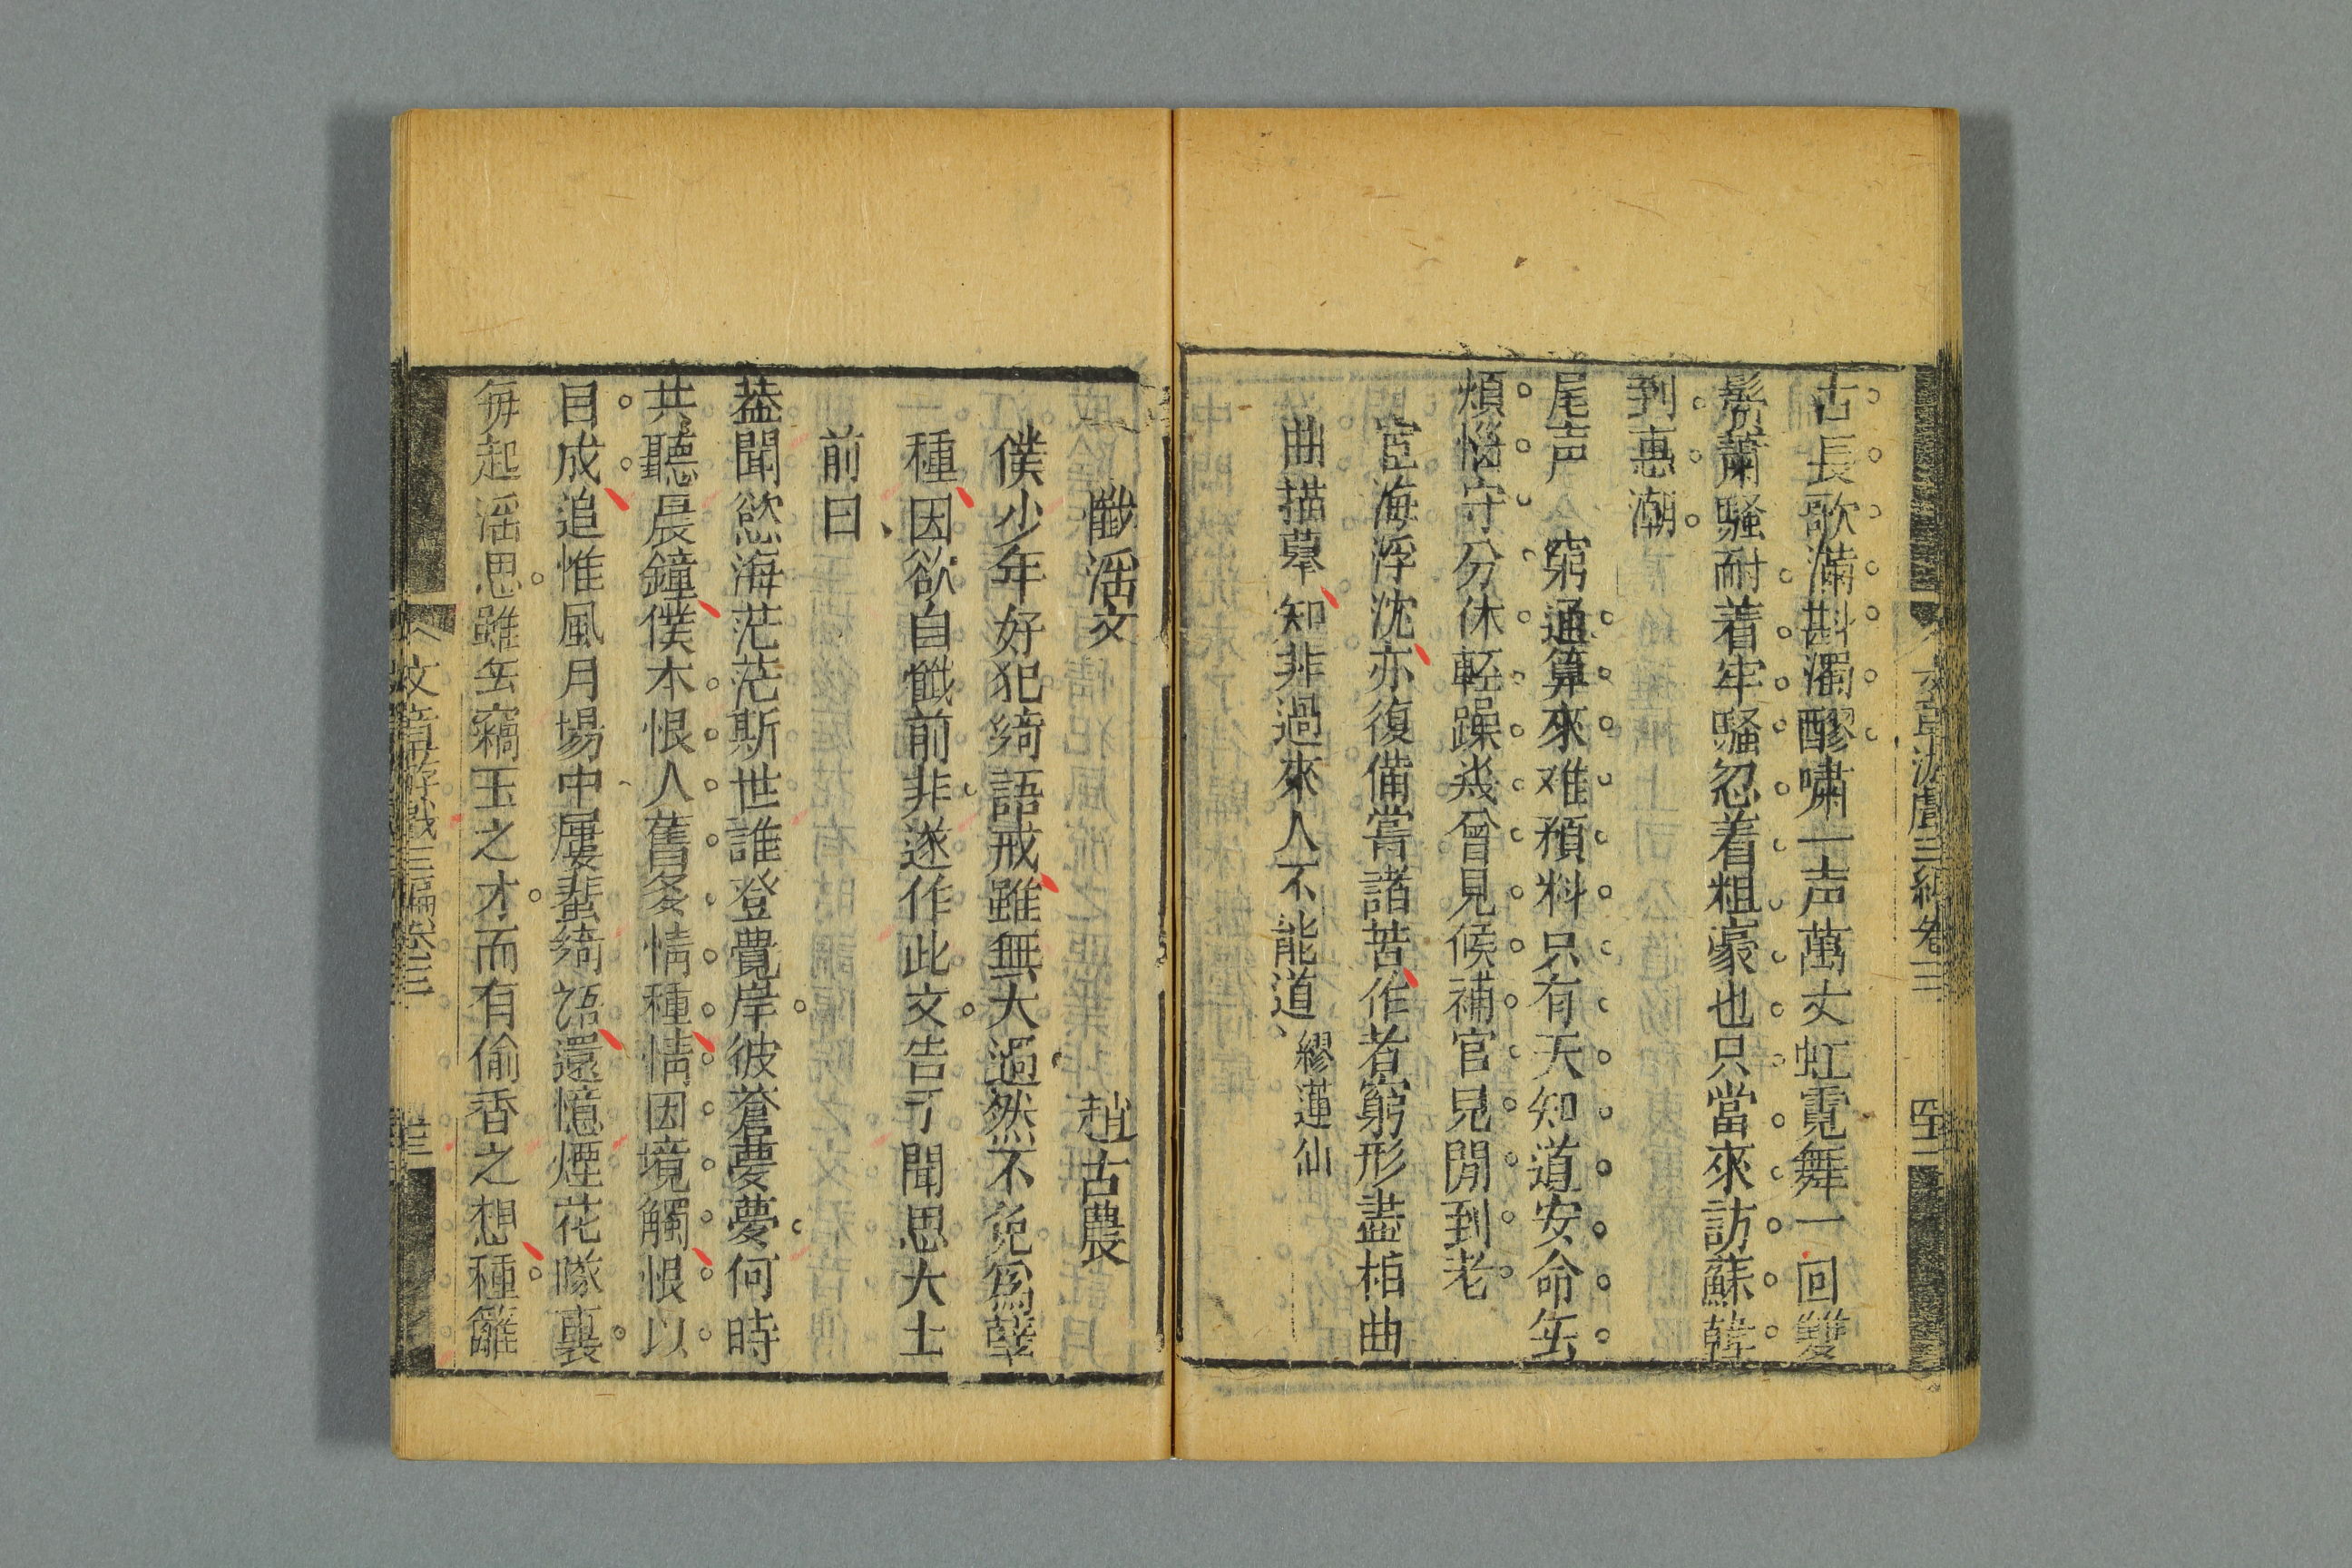 文章游戲三編卷三
古長歌滿斟濁醪嘯一声萬丈虹霓舞一回雙
鬢蕭騷耐着牢騷忍着粗豪也只當來訪蘇韓
到惠潮
尾声 窮通算來难預料只有天知道安命缶
煩惱守分休輊躁㡬曾見候補官見閒到老
宦海浮沈亦復備嘗諸苦作者窮形盡相曲
曲描摹知非過來人不能道 繆蓮仙
懺淫文 趙古農
僕少年好犯綺語戒雖無大過然不免爲孽
種因欲自懺前非遂作此文告于聞思大士
前曰
葢聞慾海茫茫斯世誰登覺岸彼蒼夢夢何時
共聽晨鐘僕本恨人舊多情種情因境觸恨以
目成追惟風月場中屢蜚綺語還憶煙花隊裏
每起淫思雖缶竊玉之才而有偷香之想種籬
文章游戲三編卷三